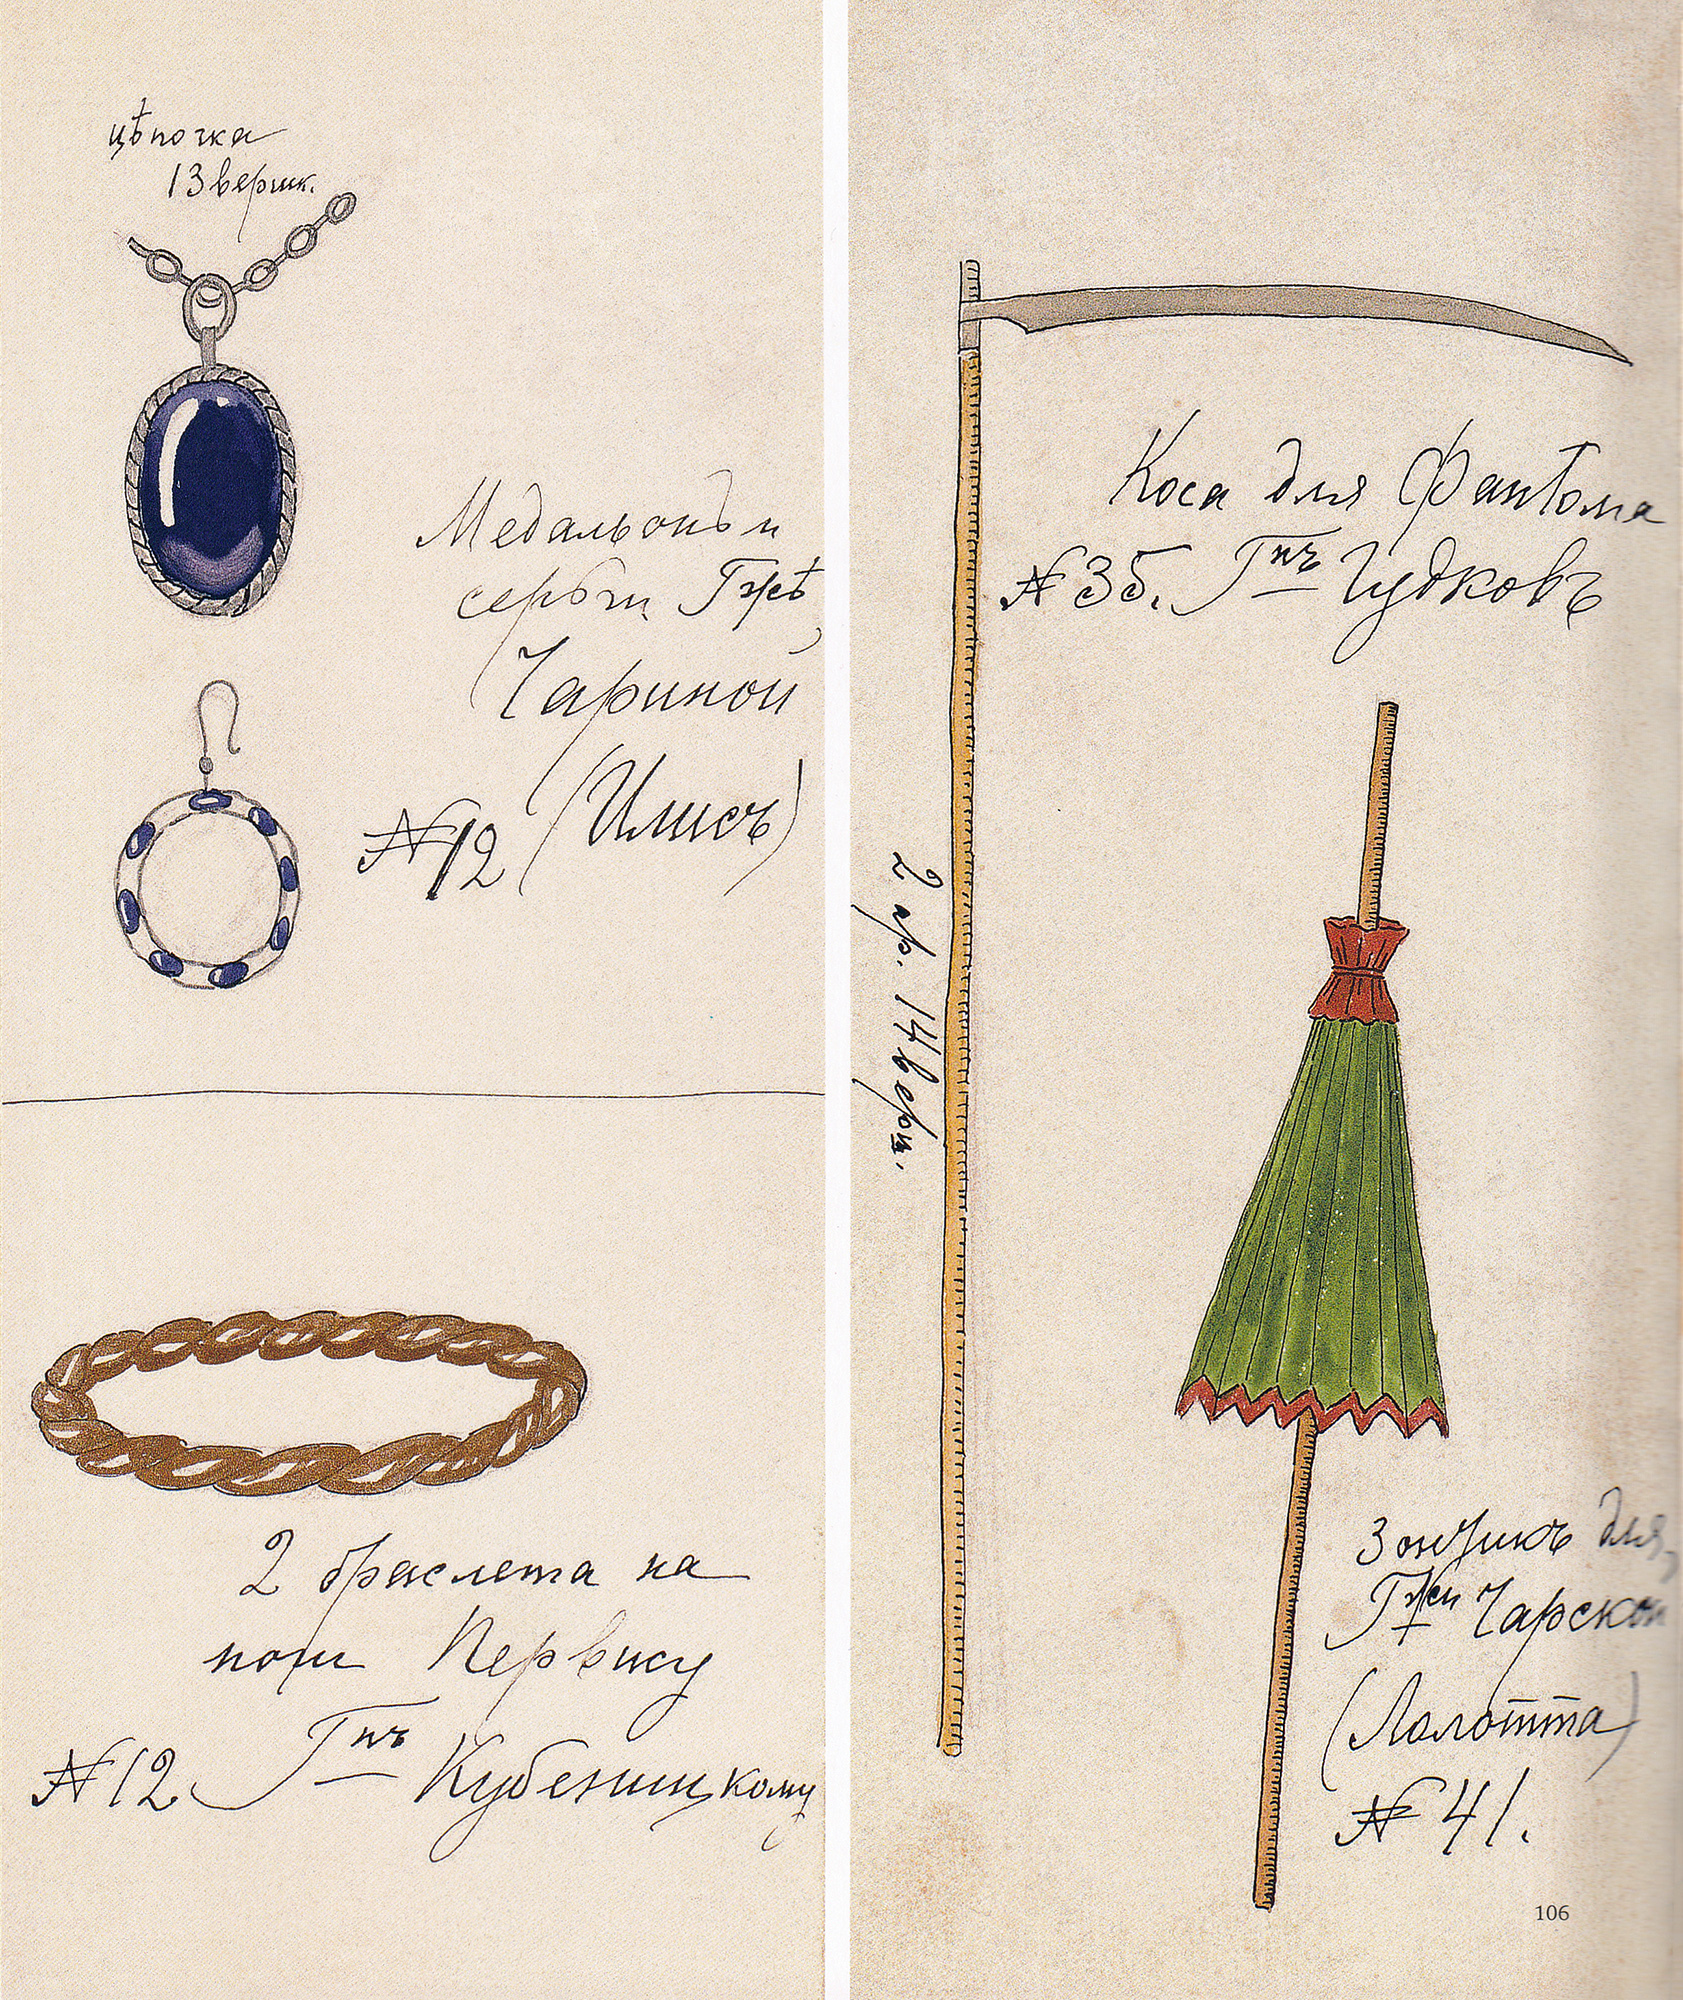 цѣпочка
13 вершк.
Медальонъ и
серьги Г-жѣ
Чариной
(Илисъ)
№ 12
2 браслета на
ноги Первису
№ 12 Г-нъ Кубеницкому
Коса для Фантома
№ 35. Г-нъ Гудковъ
2 ар. 14 верш.
Зонтикъ для
Г-жи Чарской
(Лолотта)
№ 41.
106